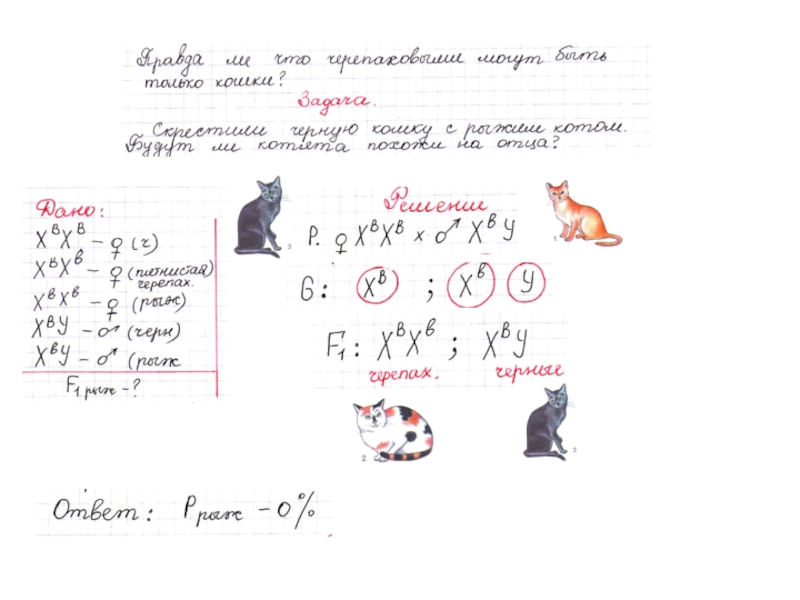 Правда ли что черепаховыми могут быть
только кошки?
Задача.
Скрестили черную кошку с рыжим котом.
Будут ли котята похожи на отца?
Дано:
X^B X^B – ♀ (ч)
X^B X^в – ♀ (пятнистая)
черепах.
X^в X^в – ♀ (рыж)
X^B У – ♂ (черн)
X^в У – ♂ (рыж
F₁ рыж – ?
Решение
P. ♀ X^B X^B × ♂ X^в У
G: X^B ; X^в У
F₁: X^B X^в ; X^B У
черепах. черные
3
1
2
3
Ответ: P рыж – 0%